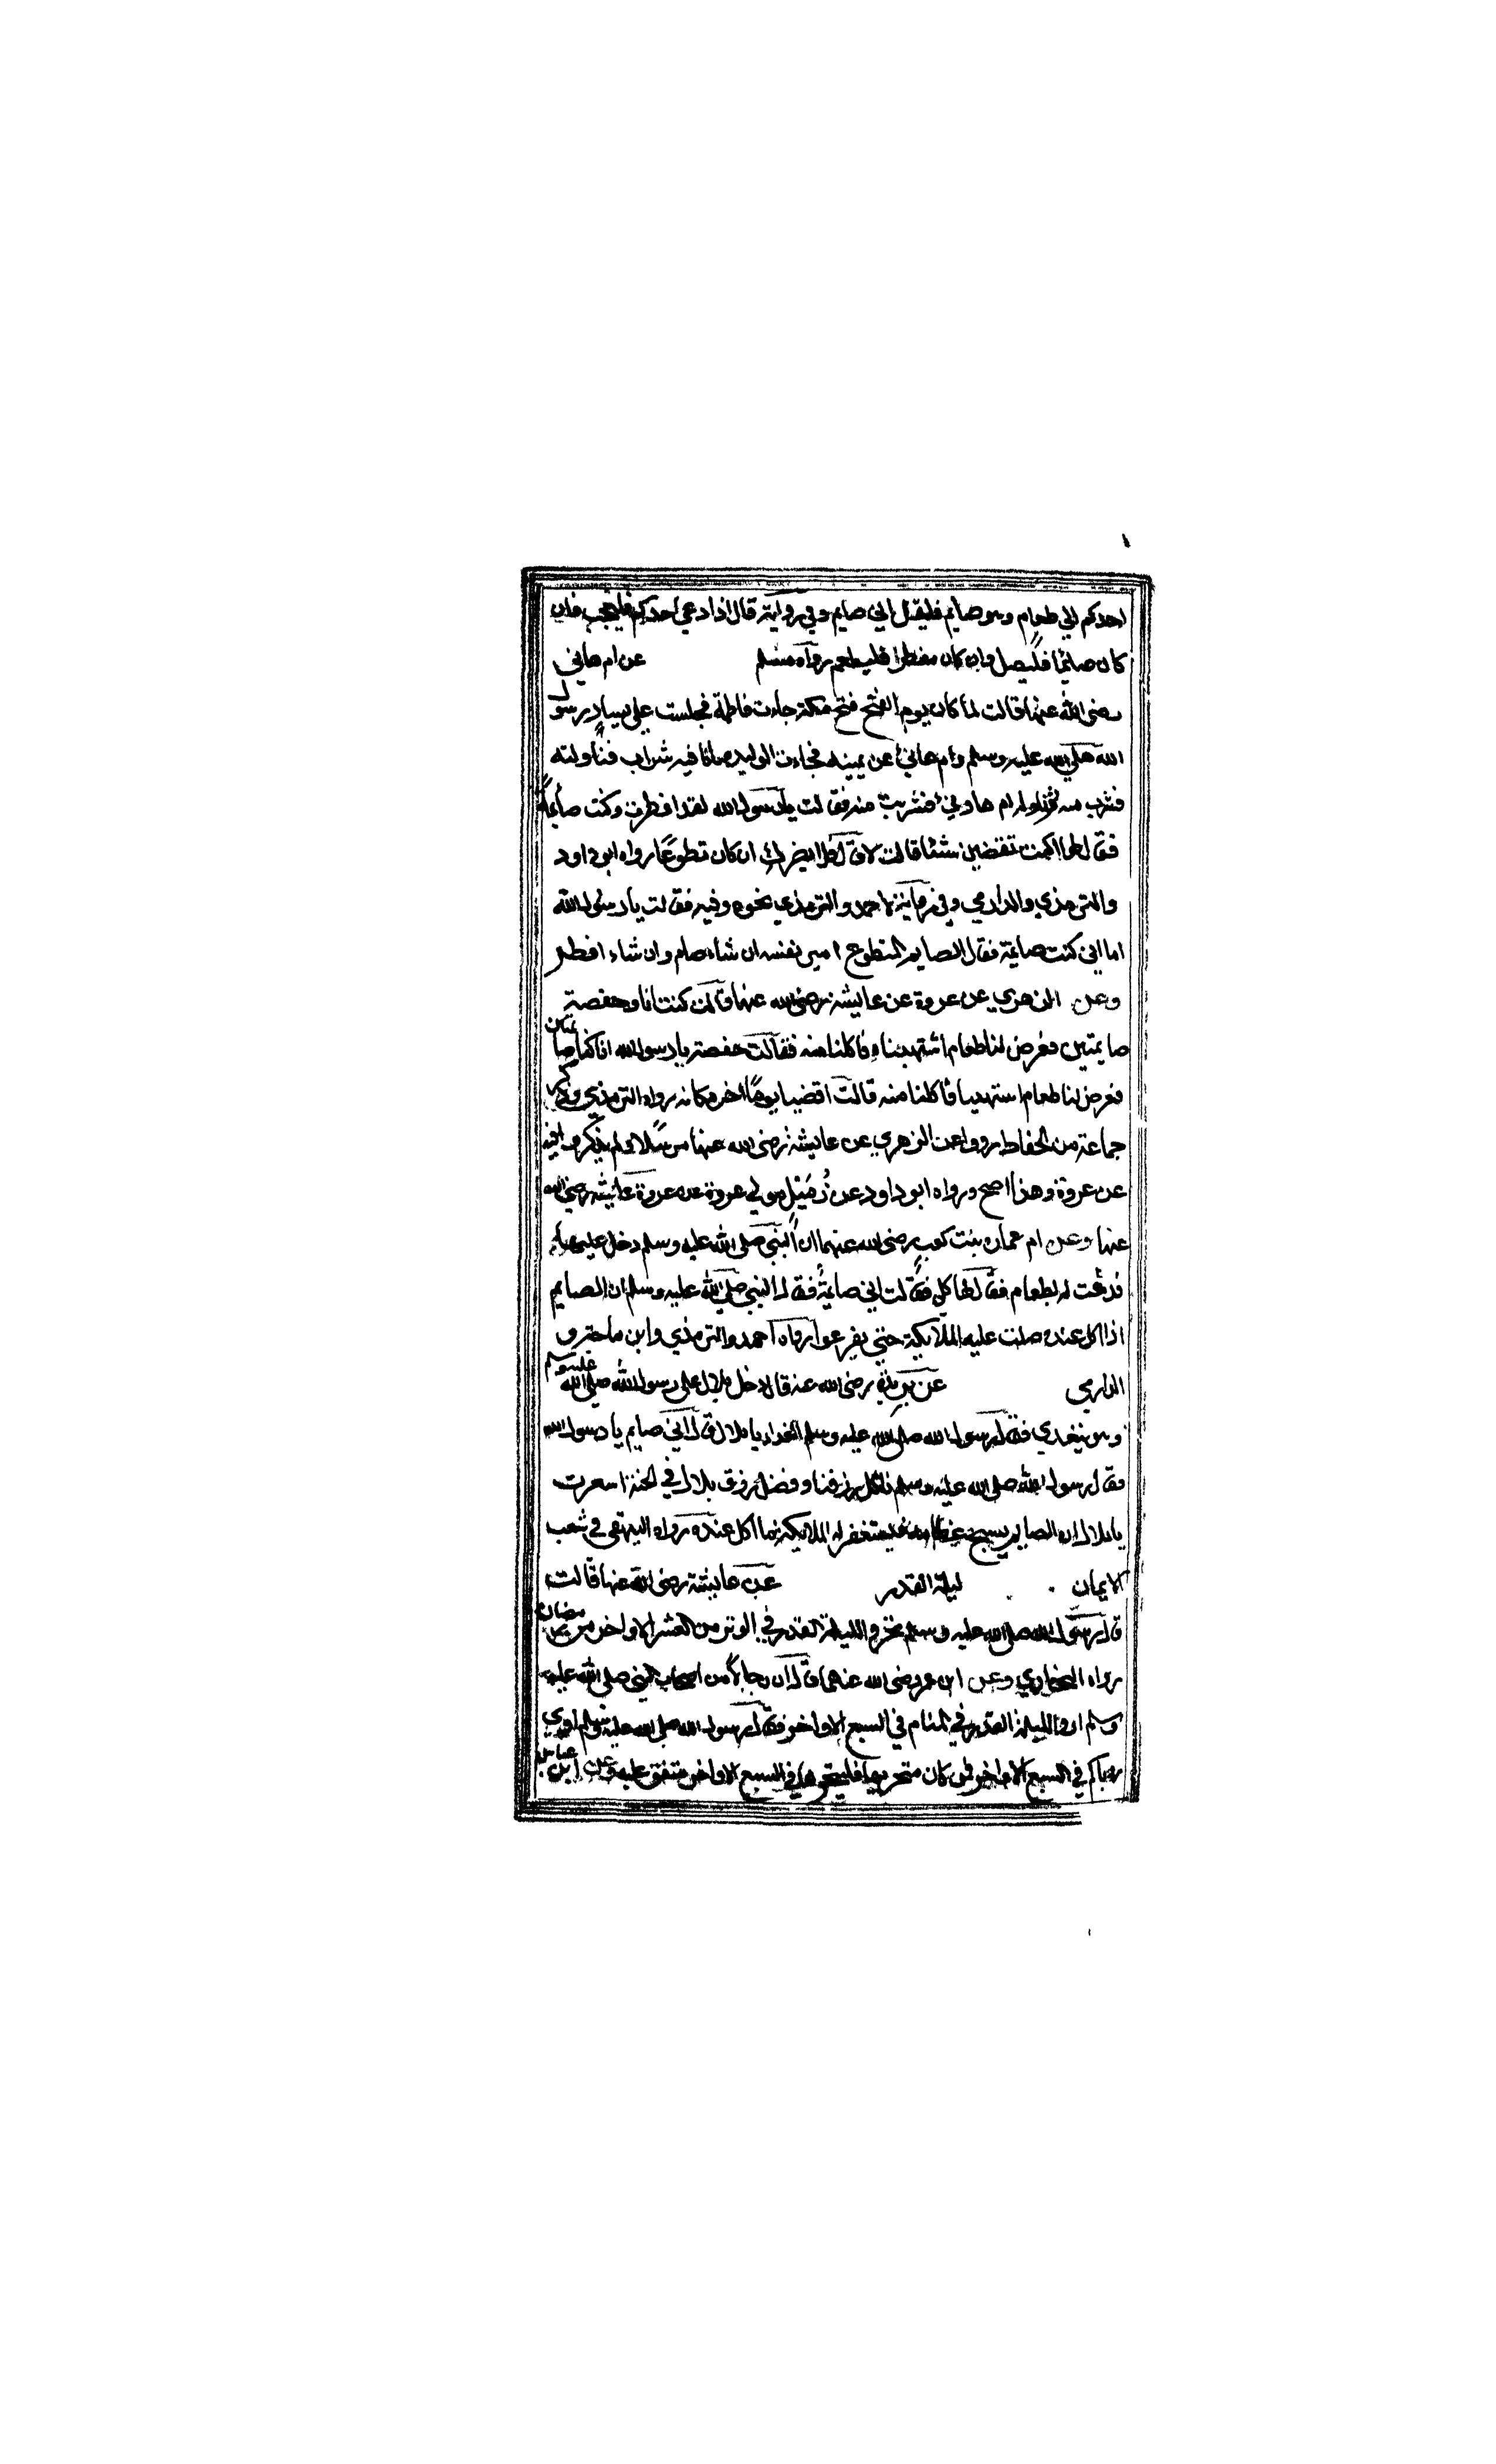 احدكم الي طعام وهو صايم فليقل اني صايم وفي رواية قال اذا دعي احدكم فليجب فان
كان صائما فليصل وان كان مفطرا فليطعم رواه مسلم عن ام هاني
رضى الله عنها قالت لما كان يوم الفتح فتح مكة جاءت فاطمة فجلست علي يسار رسول
الله صلى الله عليه وسلم وام هاني عن يمينه فجاءت الوليدة باناء فيه شراب فناولته
فشرب منه ثم ناوله ام هاني فشربت منه فقالت يا رسول الله لقد افطرت وكنت صائمة
فقال لها اكنت تقضين شئا قالت لا قال فلا يضرك ان كان تطوعا رواه ابو داود
والترمذي والدارمي وفي رواية لاحمد والترمذي نحوه وفيه فقالت يا رسول الله
اما اني كنت صائمة فقال الصايم المتطوع امير نفسه ان شاء صام وان شاء افطر
وعن الزهري عن عروة عن عايشة رضى الله عنها قالت كنت انا وحفصة
صايمتين فعرض لنا طعام اشتهيناه فاكلنا منه فقالت حفصة يا رسول الله انا كنا صايمتين
فعرض لنا طعام اشتهيناه فاكلنا منه قالت اقضيا يوما اخر مكانه رواه الترمذي وذكر
جماعة من الحفاظ رووا عن الزهري عن عايشة رضى الله عنها مرسلا ولم يذكروا فيه
عن عروة وهذا اصح ورواه ابو داود عن زميل مولي عروة عن عروة عن عايشة رضى الله
عنها وعن ام عمارة بنت كعب رضى الله عنهما ان النبي صلى الله عليه وسلم دخل عليها
فدعت له بطعام فقال لها كلي فقالت اني صايمة فقال النبي صلى الله عليه وسلم ان الصايم
اذا اكل عنده صلت عليه الملايكة حتي يفرغوا رواه احمد والترمذي وابن ماجة و
الدارمي عن بريدة رضى الله عنه قال دخل بلال على رسول الله صلى الله عليه وسلم
وهو يتغدي فقال رسول الله صلى الله عليه وسلم الغداء يا بلال قال اني صايم يا رسول الله
فقال رسول الله صلى الله عليه وسلم ناكل رزقنا وفضل رزق بلال في الجنة اشعرت
يا بلال ان الصايم يسبح عظامه ويستغفر له الملايكة ما اكل عنده رواه البيهقي في شعب
الايمان ليلة القدر عن عايشة رضى الله عنها قالت
قال رسول الله صلى الله عليه وسلم تحروا ليلة القدر في الوتر من العشر الاواخر من رمضان
رواه البخاري وعن ابن عمر رضى الله عنهما قال ان رجالا من اصحاب النبي صلى الله عليه
وسلم اروا ليلة القدر في المنام في السبع الاواخر فقال رسول الله صلى الله عليه وسلم اري
روياكم في السبع الاواخر فمن كان متحريها فليتحرها في السبع الاواخر متفق عليه وعن ابن عباس